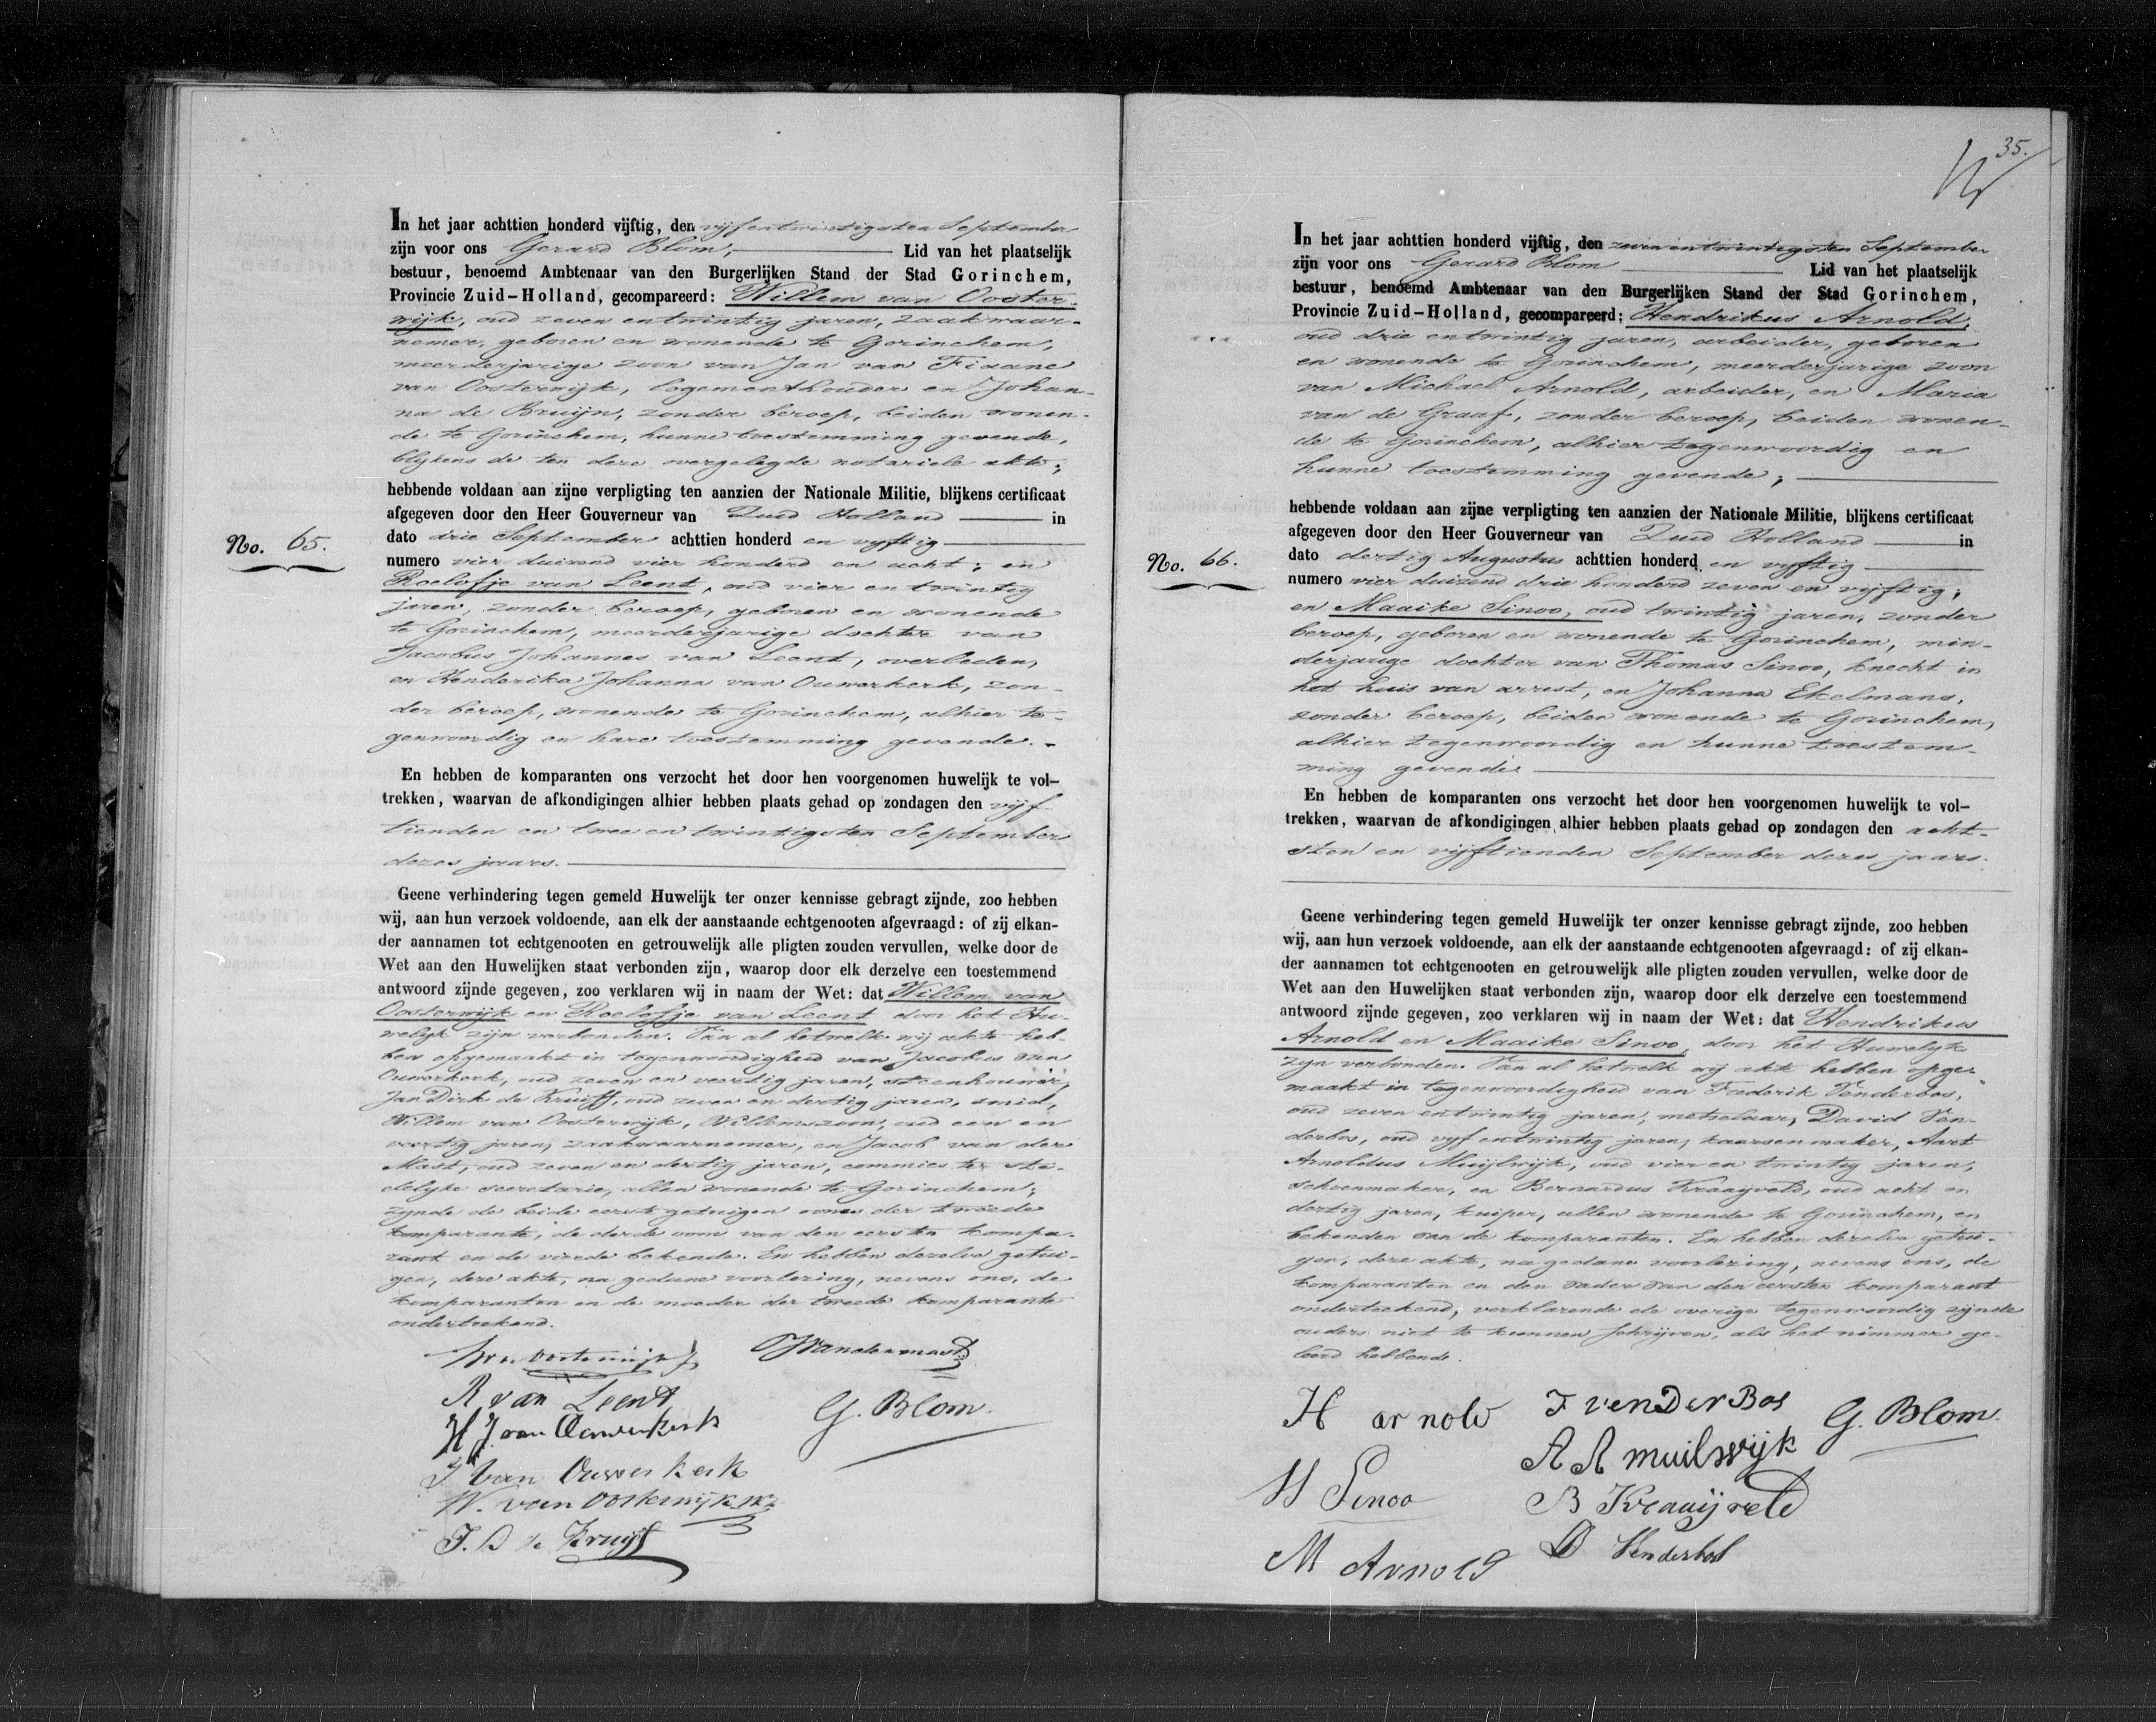 In het jaar achttien honderd vijftig, den vijfentwintigsten September
zijn voor ons Gerard Blom, Lid van het plaatselijk
bestuur, benoemd Ambtenaar van den Burgerlijken Stand der Stad Gorinchem,
Provincie Zuid-Holland, gecompareerd: Willem van Ooster-
wijk, oud zeven entwintig jaren, zaakwaar-
nemer, geboren en wonende te Gorinchem,
meerderjarige zoon van Jan van Fiaane
van Oosterwijk, logementhouder en Johan-
na de Bruijn, zonder beroep, beiden wonen-
de te Gorinchem, hunne toestemming gevende,
blijkens de ten deze overgelegde notariele akte;
hebbende voldaan aan zijne verpligting ten aanzien der Nationale Militie, blijkens certificaat
afgegeven door den Heer Gouverneur van Zuid Holland in
dato drie September achttien honderd en vyftig
No. 65.
numero vier duizend vier honderd en acht; en
Roelofje van Leent, oud vier en twintig
jaren, zonder beroep, geboren en wonende
te Gorinchem, meerderjarige dochter van
Jacobus Johannes van Leent, overleden,
en Henderika Johanna van Ouwerkerk, zon-
der beroep, wonende te Gorinchem, alhier te-
genwoordig en hare toestemming gevende.
En hebben de komparanten ons verzocht het door hen voorgenomen huwelijk te vol-
trekken, waarvan de afkondigingen alhier hebben plaats gehad op zondagen den vijf-
tienden en twee en twintigsten September
dezes jaars.
Geene verhindering tegen gemeld Huwelijk ter onzer kennisse gebragt zijnde, zoo hebben
wij, aan hun verzoek voldoende, aan elk der aanstaande echtgenooten afgevraagd: of zij elkan-
der aannamen tot echtgenooten en getrouwelijk alle pligten zouden vervullen, welke door de
Wet aan den Huwelijken staat verbonden zijn, waarop door elk derzelve een toestemmend
antwoord zijnde gegeven, zoo verklaren wij in naam der Wet: dat Willem van
Oosterwijk en Roelofje van Leent door het Hu-
welijk zijn verbonden. Van al hetwelk wij akte heb-
ben opgemaakt in tegenwoordigheid van Jacobus van
Ouwerkerk, oud zeven en veertig jaren, steenhouwer,
Jan Dirk de Kruijff, oud zeven en dertig jaren, smid,
Willem van Oosterwijk, Willemszoon, oud een en
veertig jaren, zaakwaarnemer, en Jacob van der
Mast, oud zeven en dertig jaren, commies ter ste-
delijke secretarie, allen wonende te Gorinchem;
zynde de beide eerste getuigen ooms der tweede
komparante, de derde oom van den eersten kompa-
rant en de vierde bekende. En hebben dezelve getui-
gen, deze akte, na gedane voorlezing, nevens ons, de
komparanten en de moeder der tweede komparante
onderteekend.
JVandermast
R van Leent
G. Blom.
H J. van Ouwerkerk
J Van Ouwerkerk
W. van Oosterwijk Wz
J. D de Kruyff
35.
In het jaar achttien honderd vijftig, den zevenentwintigsten September
zijn voor ons Gerard Blom Lid van het plaatselijk
bestuur, benoemd Ambtenaar van den Burgerlijken Stand der Stad Gorinchem,
Provincie Zuid-Holland, gecompareerd: Hendrikus Arnold,
oud drie entwintig jaren, arbeider, geboren
en wonende te Gorinchem, meerderjarige zoon
van Michael Arnold, arbeider, en Maria
van de Graaf, zonder beroep, beiden wonen-
de te Gorinchem, alhier tegenwoordig en
hunne toestemming gevende;
hebbende voldaan aan zijne verpligting ten aanzien der Nationale Militie, blijkens certificaat
afgegeven door den Heer Gouverneur van Zuid Holland in
dato dertig Augustus achttien honderd en vyftig
No. 66.
numero vier duizend drie honderd zeven en vijftig;
en Maaike Sinoo, oud twintig jaren, zonder
beroep, geboren en wonende te Gorinchem, min-
derjarige dochter van Thomas Sinoo, knecht in
het huis van arrest, en Johanna Ekelmans,
zonder beroep, beiden wonende te Gorinchem,
alhier tegenwoordig en hunne toestem-
ming gevende
En hebben de komparanten ons verzocht het door hen voorgenomen huwelijk te vol-
trekken, waarvan de afkondigingen alhier hebben plaats gehad op zondagen den acht-
sten en vijftienden September dezes jaars.
Geene verhindering tegen gemeld Huwelijk ter onzer kennisse gebragt zijnde, zoo hebben
wij, aan hun verzoek voldoende, aan elk der aanstaande echtgenooten afgevraagd: of zij elkan-
der aannamen tot echtgenooten en getrouwelijk alle pligten zouden vervullen, welke door de
Wet aan den Huwelijken staat verbonden zijn, waarop door elk derzelve een toestemmend
antwoord zijnde gegeven, zoo verklaren wij in naam der Wet: dat Hendrikus
Arnold en Maaike Sinoo, door het Huwelijk
zijn verbonden. Van al hetwelk wij akte hebben opge-
maakt in tegenwoordigheid van Frederik Venderbos,
oud zeven entwintig jaren, metselaar, David Ven-
derbos, oud vyf entwintig jaren, kaarsenmaker, Aart
Arnoldus Muijlwijk, oud vier en twintig jaren,
schoenmaker, en Bernardus Kraayveld, oud acht en
dertig jaren, kuiper, allen wonende te Gorinchem, en
bekenden van de komparanten. En hebben dezelve getui-
gen, deze akte, na gedane voorlezing, nevens ons, de
komparanten en den vader van den eersten komparant
onderteekend, verklarende de overige tegenwoordig zijnde
ouders niet te kunnen schrijven, als het nimmer ge-
leerd hebbende.
H arnold F venDerBos G. Blom.
A A muilwijk
M Sinoo B Kraaijveld
M Arnold D Venderbos